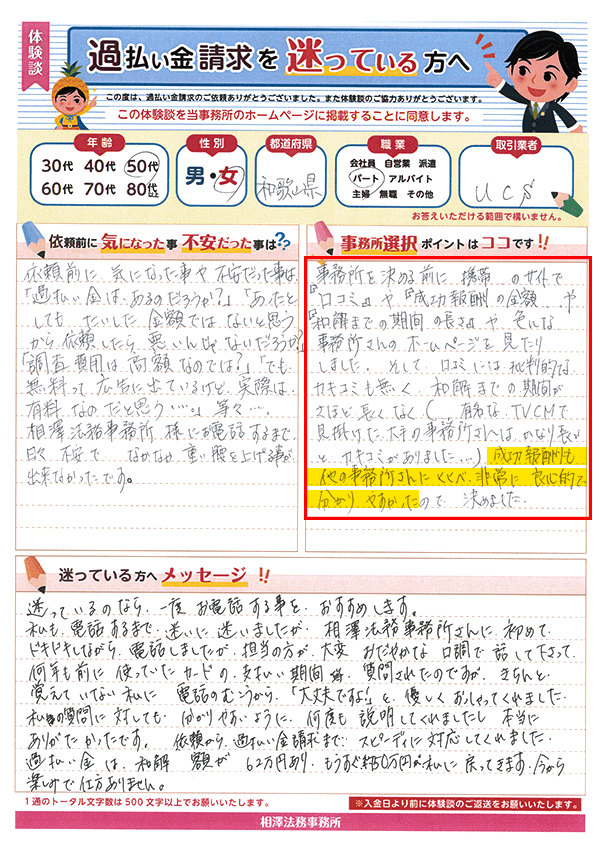 体験談
過払い金請求を迷っている方へ
この度は、過払い金請求のご依頼ありがとうございました。また体験談のご協力ありがとうございます。
この体験談を当事務所のホームページに掲載することに同意します。
年齢
30代 40代 50代
60代 70代 80代以上
性別
男・女
都道府県
和歌山県
職業
会社員 自営業 派遣
パート アルバイト
主婦 無職 その他
取引業者
UCS
お答えいただける範囲で構いません。
依頼前に気になった事 不安だった事は??
依頼前に 気になった事や 不安だった事は、
「過払い金は、あるのだろうか?」「あったと
しても たいした 金額では ないと思う
から 依頼したら 悪いんじゃないだろうか?」
「調査費用は 高額なのでは?」「でも
無料って 広告に出ているけど、実際は、
有料 なのだと思う…。」等々….
相澤法務事務所 様にお電話するまで.
日々 不安で なかなか 重い腰を上げる事が
出来なかったです。
事務所選択 ポイントはココです!!
事務所を 決める前に 携帯 のサイトで
『口コミ』や『成功報酬 の金額 や
和解までの 期間 の長さ』や 色んな
事務所さんの ホームページを 見たり
しました。 そして 口コミには 批判的な
カキコミも 無く、 和解までの期間が
さほど 長く なく( 有名な TVCMで
見掛けた 大手の事務所さんは かなり長い
と カキコミがありました…) 成功報酬も
他の事務所さんに くらべ 非常に 良心的で
分かり やすかったので 決めました.
迷っている方へ メッセージ !!
迷っているのなら、一度 お電話 する事を おすすめします。
私も、電話するまで 迷いに 迷いましたが、 相澤法務事務所さんに 初めて
ドキドキしながら 電話しましたが、担当の方が 大変 おだやかな 口調で 話して下さって、
何年も前に 使っていた カードの 支払い 期間 等 質問されたのですが、きちんと
覚えて いない 私に 電話のむこうから、「大丈夫ですよ!」と、優しく おっしゃってくれました.
私の質問に 対しても 分かりやすいように 何度も 説明してくれましたし 本当に
ありがたかったです。 依頼から、過払い金請求まで スピーディに対応してくれました.
過払い 金は、和解 額が 62万円あり、もうすぐ 約50万円が私に 戻ってきます.今から
楽しみで仕方ありません。
1通のトータル文字数は500文字以上でお願いいたします。
※入金日より前に体験談のご返送をお願いいたします。
相澤法務事務所